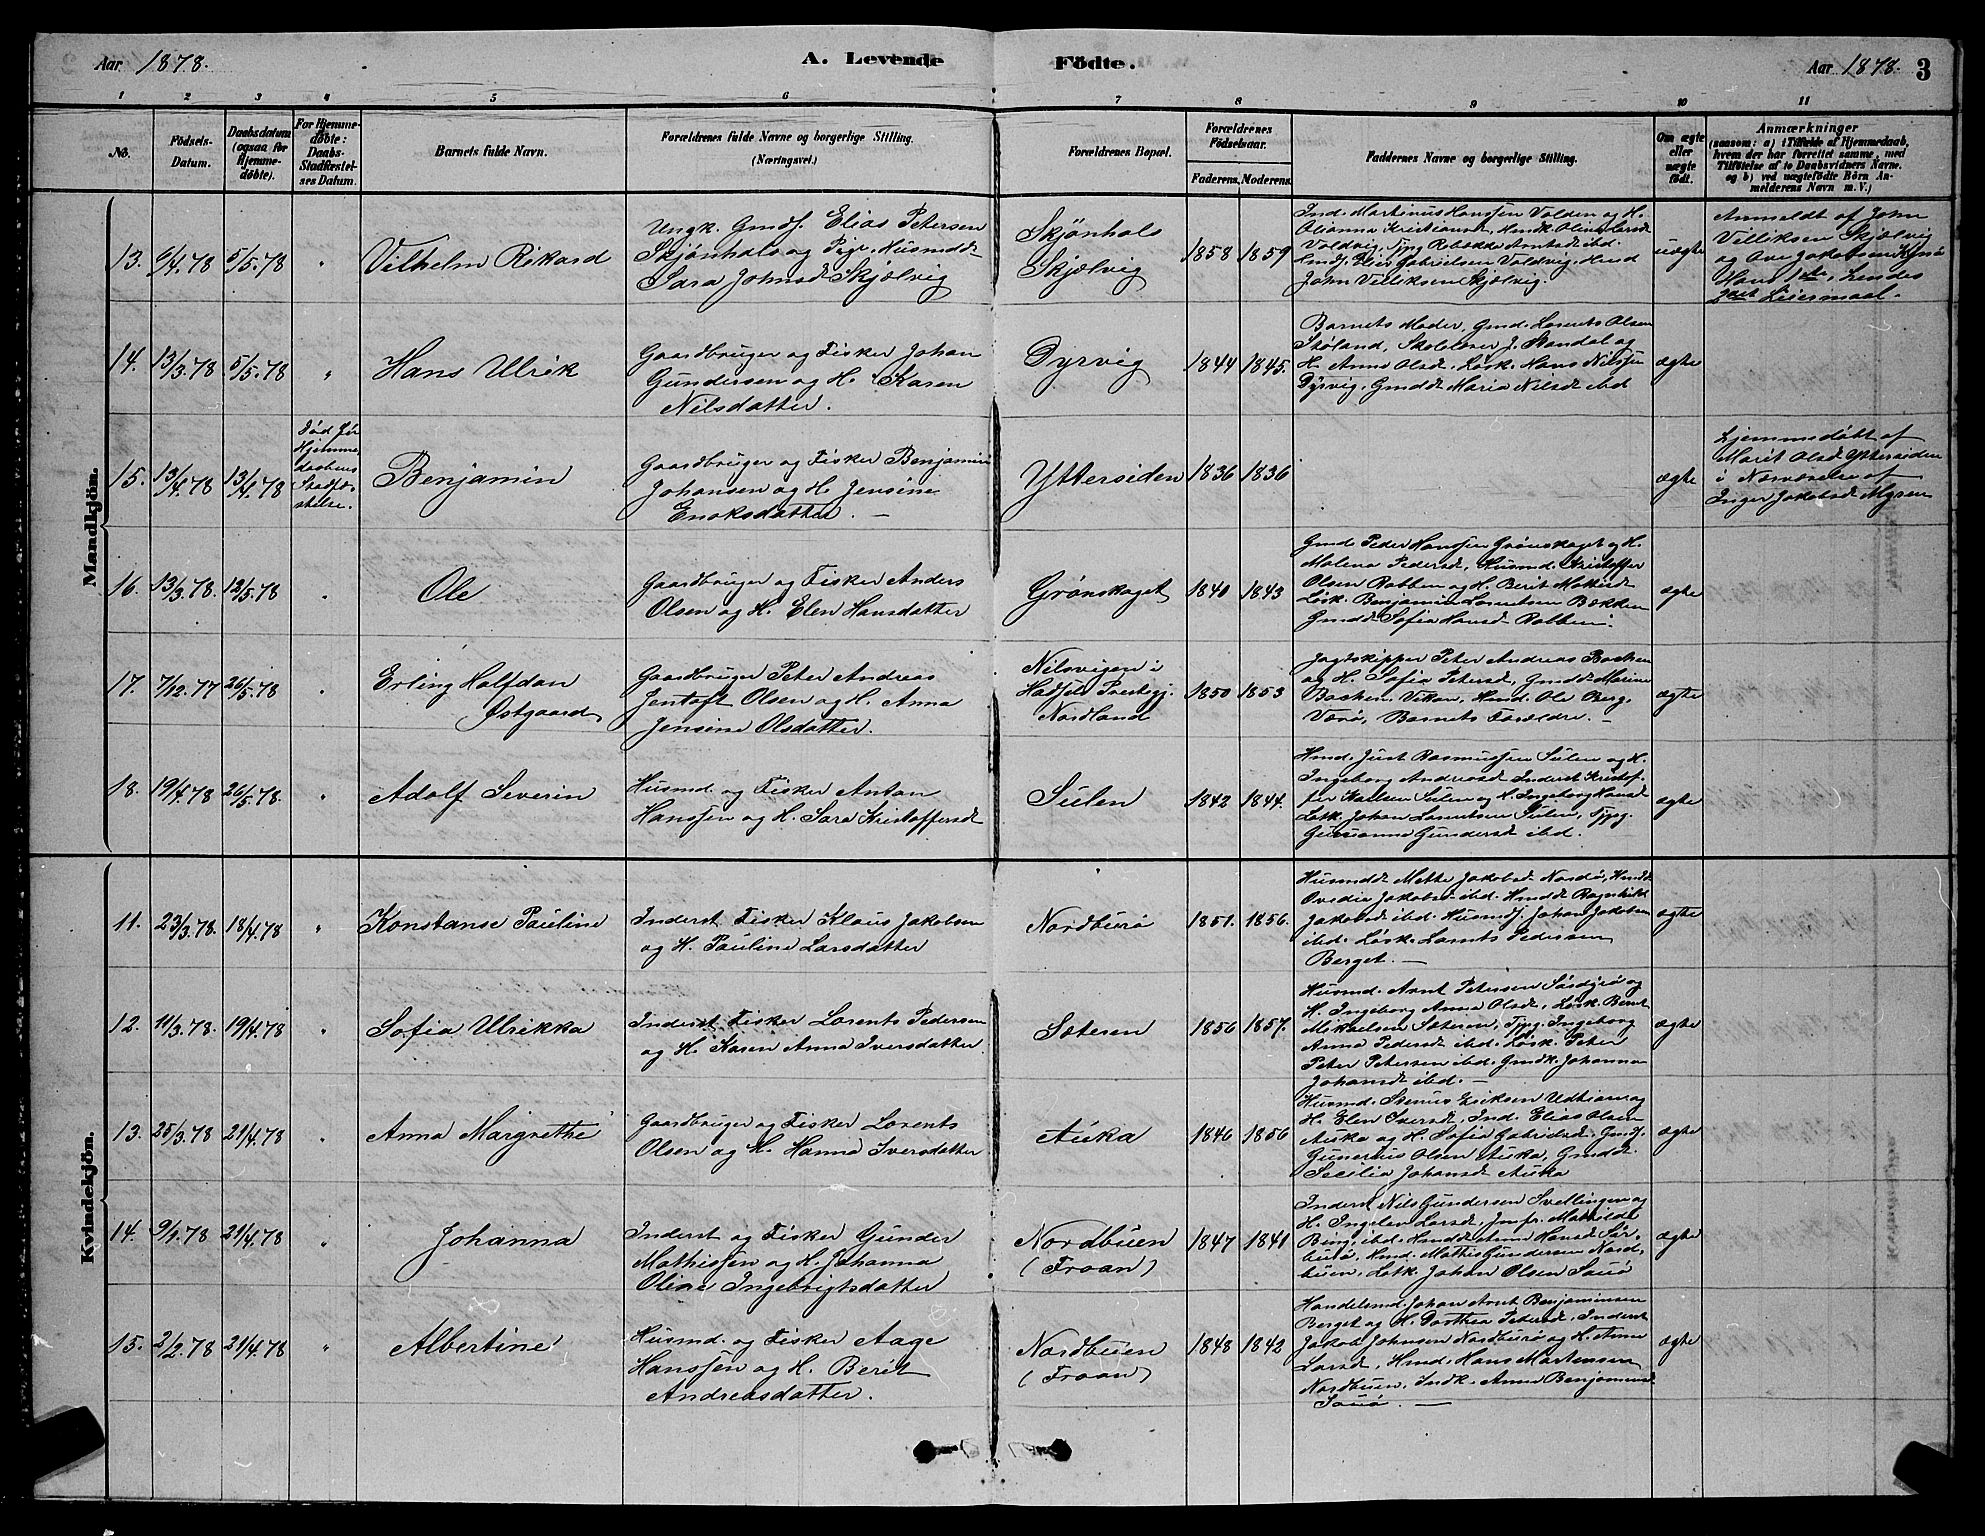 Aar 1878.
A. Levende Födte.
Aar 1878. 3
1 2 3 4 5 6 7 8 9 10 11
No.
Födsels-
Datum.
Daabsdatum
(ogsaa for
Hjemme-
döbte).
For Hjemme-
döbte:
Daabs-
Stadfæstel-
ses Datum.
Barnets fulde Navn.
Forældrenes fulde Navne og borgerlige Stilling.
(Næringsvei.)
Forældrenes Bopæl.
Forældrenes
Födselsaar.
Faderens. Moderens.
Faddernes Navne og borgerlige Stilling.
Om ægte
eller
uægte
födt.
Anmærkninger
(saasom: a) i Tilfælde af Hjemmedaab,
hvem der har forrettet samme, med
Tilföielse af to Daabsvidners Navne.
og b) ved uægtefödte Börn An-
melderens Navn m. V.)
Mandkjön.
13. 6/4 78 5/5 78 "
Vilhelm Rikard
Ungk. Gmds. Elias Petersen
Skjønhals og Pige Husmdt
Sara Johnsdt Skjølvig
Skjønhals
Skjølvig
1858 1859
Ind. Martinus Hanssen Valden og H.
Olianna Kristiansd.
John Villiksen Skjølvig.
uægte
Anmeldt af John
Villiksen Skjølvig
og Ove Jakobsen
Hans 1ste, hendes
2det Leiermaal.
14. 13/3 78 5/5 78 "
Hans Ulrik
Gaardbruger og Fisker Johan
Gundersen og H. Karen
Nilsdatter.
Dyrvig
1844 1845.
Barnets Moder, Gmd. Lorents Olsen
Skolelærer J. Stendal og
H. Anne Olsd. Løsk. Hans Nilssen
Dyrvig, Gmddt Maria Nilsdt ibd
ægte
15. 13/4 78 13/4 78
Død før
Hjemme
daabens
Stadfæ-
stelse.
Benjamin
Gaardbruger og Fisker Benjamin
Johansen og H. Jensine
Enoksdatter. —
Yttersiden
1836 1836
ægte
Hjemmedøbt af
Marit Olsd. Yttersiden
i Nærværelse af
Inger Jakobsd. Myren
16. 13/3 78. 12/5 78 "
Ole
Gaardbruger og Fisker Anders
Olsen og H. Elen Hansdatter
Grønskaget
1840 1843
Gmd. Peder Hanssen Grønskaget og H.
Malena Pedersd., Husmd. Kristoffer
Olsen Rabben og H. Berit
Løsk. Benjamin Lorentsen Bækken
Gmddt Sofia Hansd. Rabben.
ægte
17. 7/12 77 26/5 78 "
Erling Halfdan
Østgaard
Gaardbruger Peter Andreas
Jentoft Olsen og H. Anna
Jensine Olsdatter.
Nilsvigen i
Hadsels Præstegj.
Nordland
1850 1853
Jagtskipper Peter Andreas Bachen
og H. Sofia Petersd., Gmddt Marine
Bachen Viken, Hand. Ole Berg,
Værø, Barnets Forældre. —
ægte
18. 19/4 78 26/5 78. "
Adolf Severin
Husmd. og Fisker Anton
Hanssen og H. Sara Kristoffersdt
Sulen
1842 1844.
Hmd. Just Rasmussen Sulen og H.
Ingeborg Andreasd. Inderst Kristof-
fer Karlsen Sulen og H. Ingeborg Hansd.
Løsk. Johan Lorentsen Sulen, Tjpg.
Gurianna Gundersd ibd.
ægte
Kvindekjön.
11. 23/3 78. 18/4 78 "
Konstanse Pauline
Inderst Fisker Klaus Jakobsen
og H. Pauline Larsdatter
Nordburø
1851. 1856.
Husmddt Mette Jakobsd. Nordø, Hmddt
Ovedia Jakobsd. ibd. Hmddt Ragnhild
Jakobsd. ibd. Husmds. Johan Jakobsen
ibd. Løsk. Lornts Pedersen
Berget. —
ægte
12. 11/3 78. 19/4 78 "
Sofia Ulrikka
Inderst Fisker Lorents Pedersen
og H. Karen Anna Iversdatter
Sæteren
1856 1857.
Husmd. Arnt Petersen og
H. Ingeborg Anna Olsd., Løsk. Bernt
Mikaelsen Sæteren, Tjpg. Ingeborg
Anna Pedersd. ibd. Løsk. Peter
Peter Petersen ibd. Gmdk. Johanna
Johansd. ibd. —
ægte
13. 25/3 78 21/4 78 "
Anna Margrethe
Gaardbruger og Fisker Lorents
Olsen og H. Hanna Iversdatter
Auka
1846 1856
Husmd. Stenus Eriksen Udtian og
H. Elen Iversd., Ind. Elias Olsen
Auka og H. Sofia Gabrielsd. Gmds.
Gunerius Olsen Auka, Gmddt.
Secilia Johansd Auka
ægte
14. 9/1 78 21/4 78 "
Johanna
Inderst og Fisker Gunder
Mathissen og H. Johanna
Oliane Ingebrigtsdatter
Nordbuen
(Froan)
1847 1841
Inderst Nils Gundersen Svellingen og
H. Ingelen Larsd., Jmfr. Mathilde
Bing, ibd. Hmddt Anne Hansd. Sør-
burø, Hmd. Mathis Gundersen Nord-
buen, Løsk. Johan Olsen Sauø
ægte
15. 2/2 78 21/4 78 "
Albertine
Husmd. og Fisker Aage
Hanssen og H. Berit
Andreasdatter.
Nordbuen
(Froan)
1848 1842
Handelsmd. Johan Arnt Benjaminsen
Berget og H. Dorthea Petersd., Inderst
Jakob Johnsen Nordburø og H. Anne
Larsd., Hmd. Hans Mortensen
Nordbuen, Indk. Anne Benjaminsd
Sauø. —
ægte